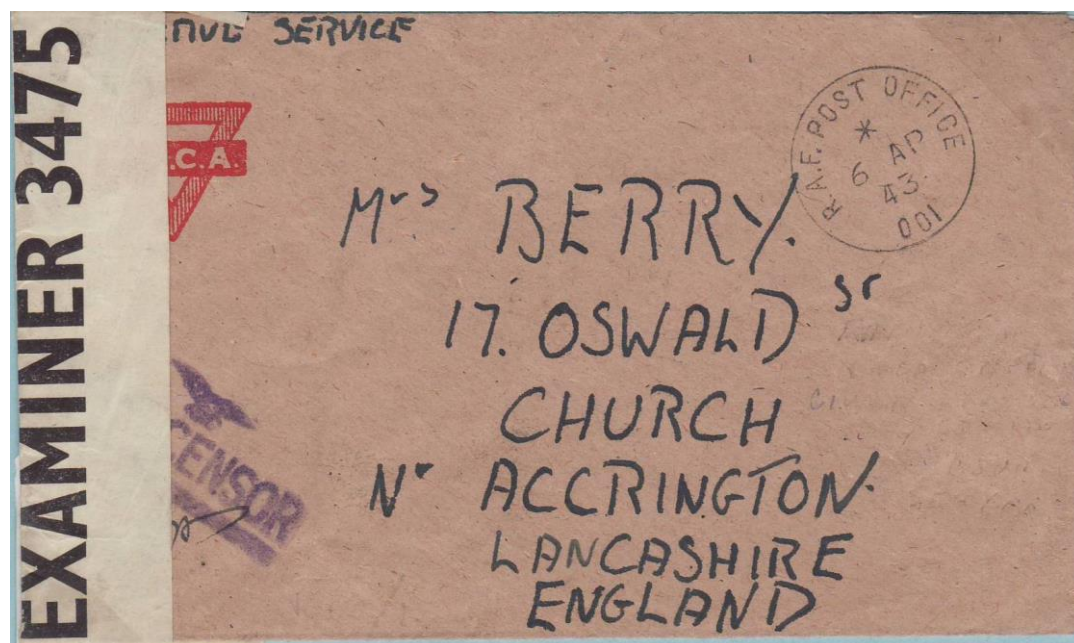 EXAMINER 3475
SERVICE
.C.A.
R.A.F. POST OFFICE
*
6 AP
43
001
Mrs BERRY.
17. OSWALD ST
CHURCH
Nr ACCRINGTON.
LANCASHIRE
ENGLAND
CENSOR